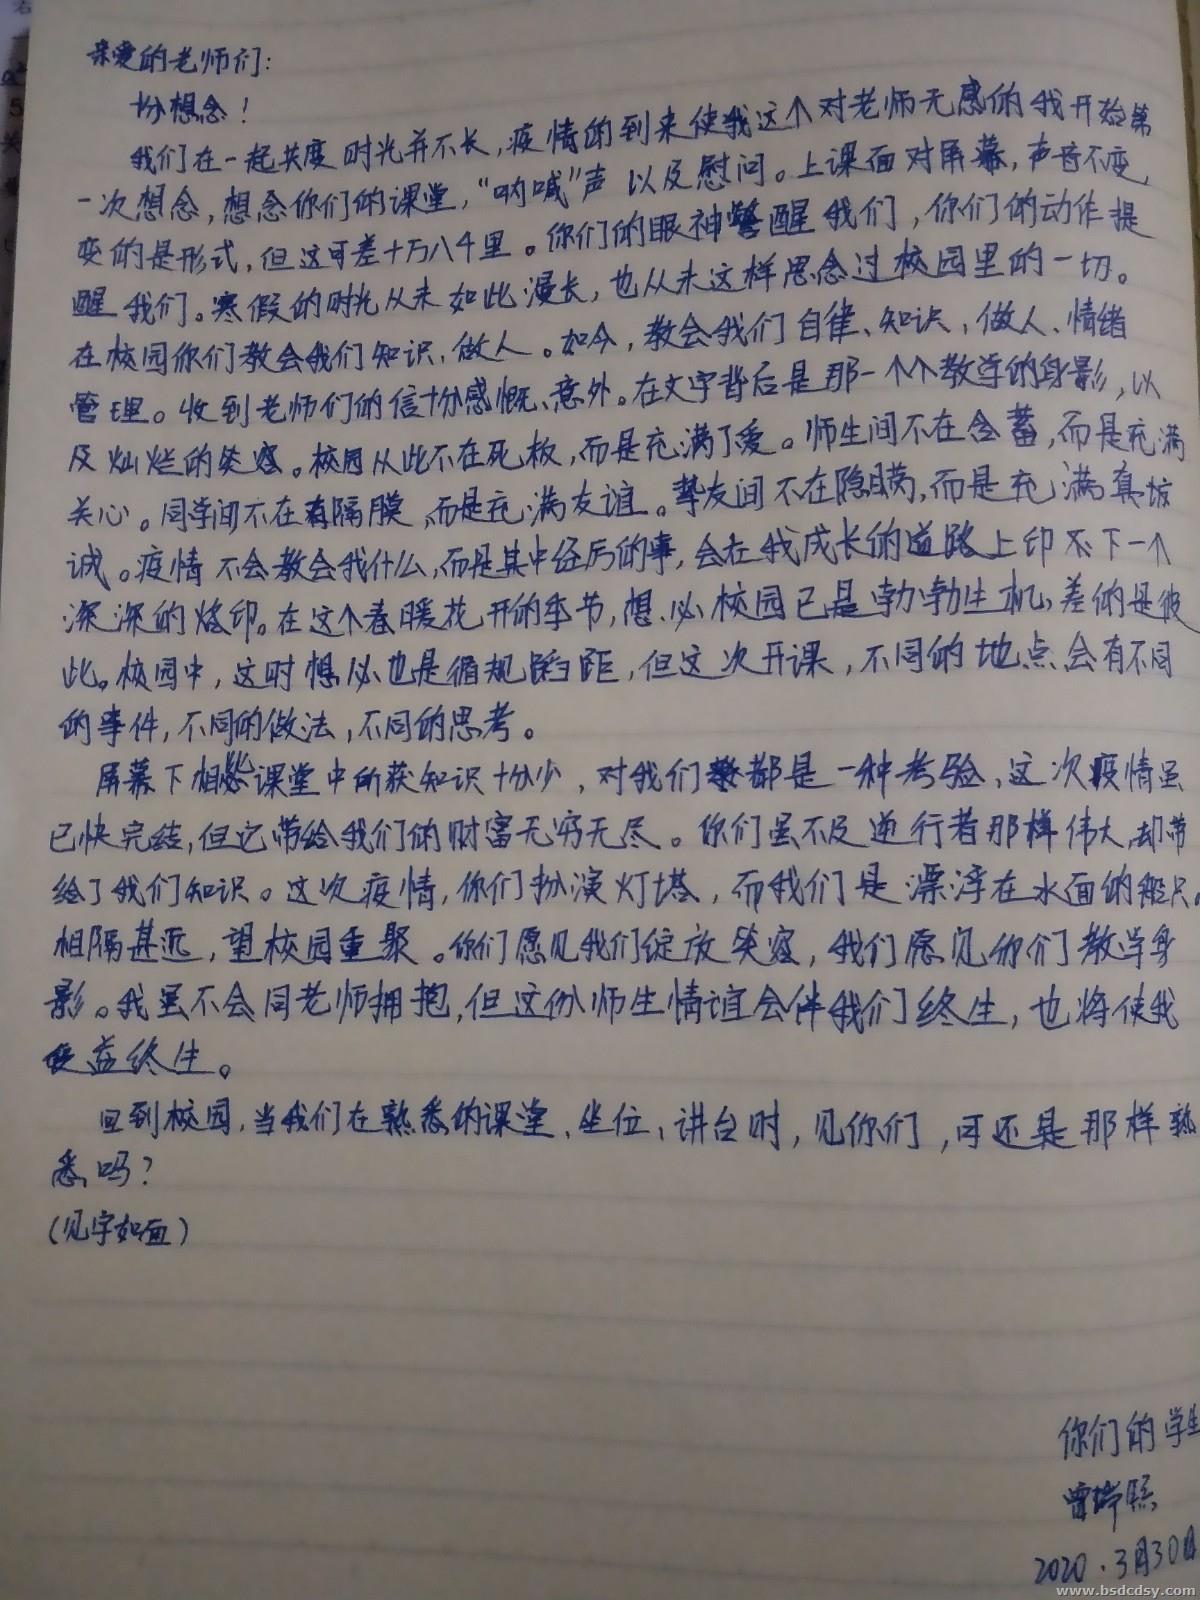 亲爱的老师们:
十分想念!
我们在一起共度时光并不长,疫情的到来使我这个对老师无感的我开始第
一次想念,想念你们的课堂,“呐喊”声 以及慰问。上课面对屏幕,声音不变,
变的是形式,但这可差十万八千里。你们的眼神警醒我们,你们的动作提
醒我们。寒假的时光从未如此漫长,也从未这样思念过校园里的一切。
在校园你们教会我们知识,做人。如今,教会我们自律、知识,做人、情绪
管理。收到老师们的信十分感慨、意外。在文字背后是那一个个教学的身影,以
及灿烂的笑容。校园从此不在死板,而是充满了爱。师生间不在含蓄,而是充满
关心。同学间不在有隔膜,而是充满友谊。挚友间不在隐瞒,而是充满真
诚。疫情不会教会我什么,而是其中经历的事,会在我成长的道路上印下一个
深深的烙印。在这个春暖花开的季节,想必校园已是勃勃生机,差的是彼
此。校园中,这时想必也是循规蹈距,但这次开课,不同的地点会有不同
的事件,不同的做法,不同的思考。
屏幕下相比课堂中所获知识十分少,对我们都是一种考验,这次疫情虽
已快完结,但它带给我们的财富无穷无尽。你们虽不及逆行者那样伟大,却带
给了我们知识。这次疫情,你们扮演灯塔,而我们是漂浮在水面的船只。
相隔甚远,望校园重聚。你们愿见我们绽放笑容,我们愿见你们教学身
影。我虽不会同老师拥抱,但这份师生情谊会伴我们终生,也将使我
受益终生。
回到校园,当我们在熟悉的课堂、坐位、讲台时,见你们,可还是那样熟
悉吗?
(见字如面)
你们的学生
曾
2020.3月30日
www.bsdcdsy.com